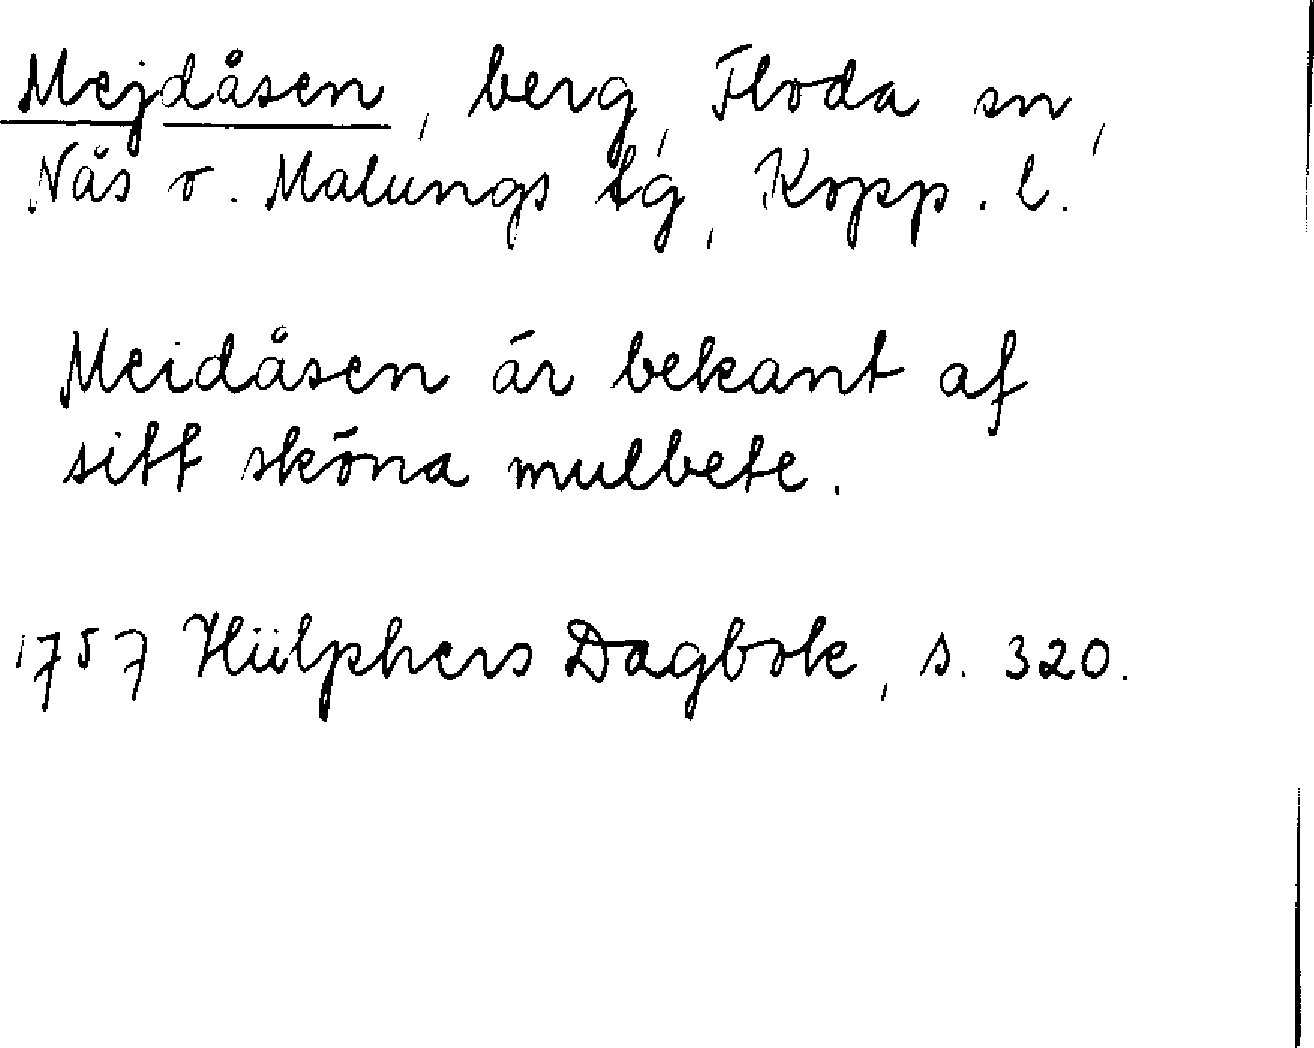 Mejdåsen, berg, Floda sn,
Näs o. Malungs tg, Kopp. l.
Meidåsen är bekant af
sitt sköna mulbete.
1757 Hülphers Dagbok, s. 320.